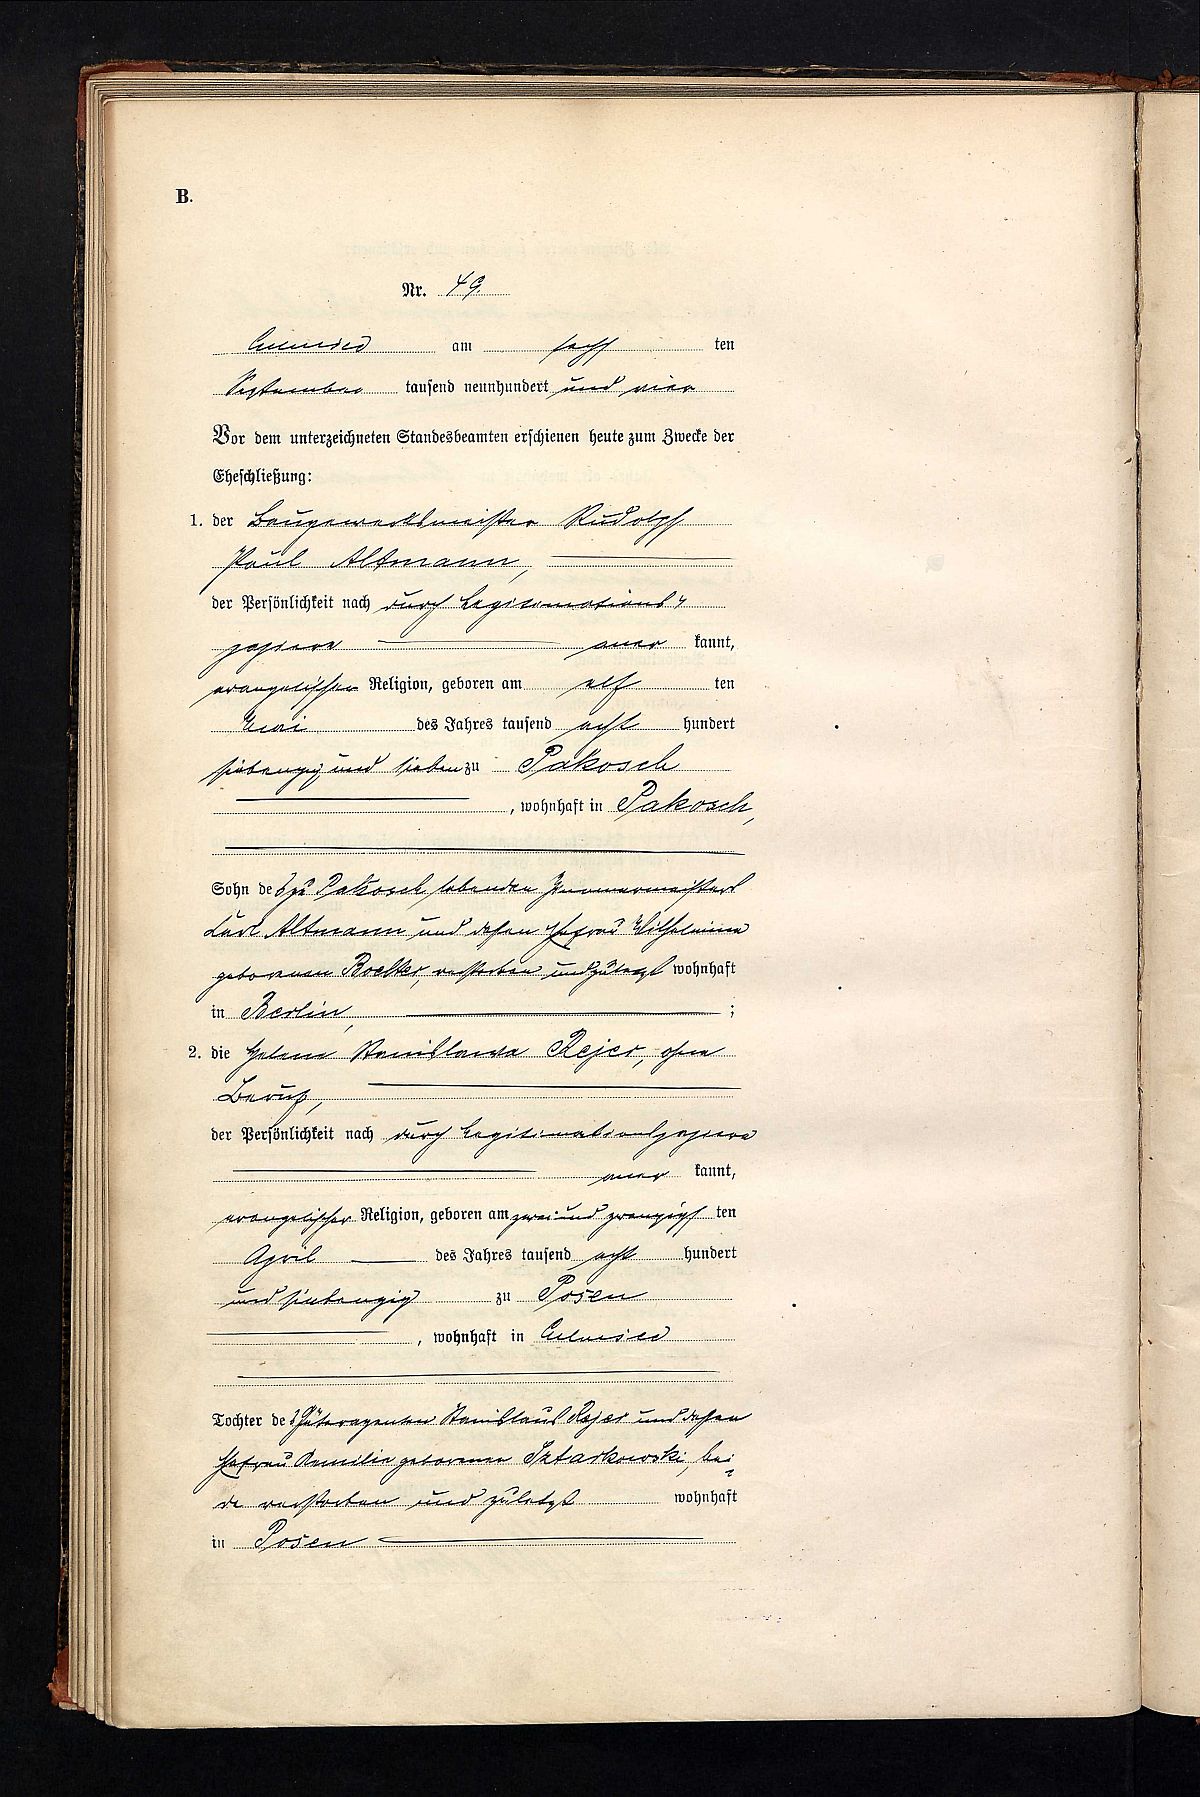 B.
Nr. 49.
Culmsee am sechs ten
September tausend neunhundert und vier
Vor dem unterzeichneten Standesbeamten erschienen heute zum Zwecke der
Eheschließung:
1. der Baugewerksmeister Rudolph
Paul Altmann,
der Persönlichkeit nach durch Legitimations-
papiere aner kannt,
evangelischer Religion, geboren am elf ten
Mai des Jahres tausend acht hundert
siebenzig und sieben zu Pakosch
, wohnhaft in Pakosch,
Sohn des zu Pakosch lebenden Zimmermeisters
Karl Altmann und dessen Ehefrau Wilhelmine
geborenen Roelker, verstorben und zuletzt wohnhaft
in Berlin, ;
2. die Helene Stanislawa Rejer, ohne
Beruf,
der Persönlichkeit nach durch Legitimationspapiere
aner kannt,
evangelischer Religion, geboren am zwei und zwanzigs ten
April des Jahres tausend acht hundert
und siebenzig zu Posen
, wohnhaft in Culmsee
Tochter des Güteragenten Stanislaus Rejer und dessen
Ehefrau Emilie geborenen Sztarkowski, bei-
de verstorben und zuletzt wohnhaft
in Posen